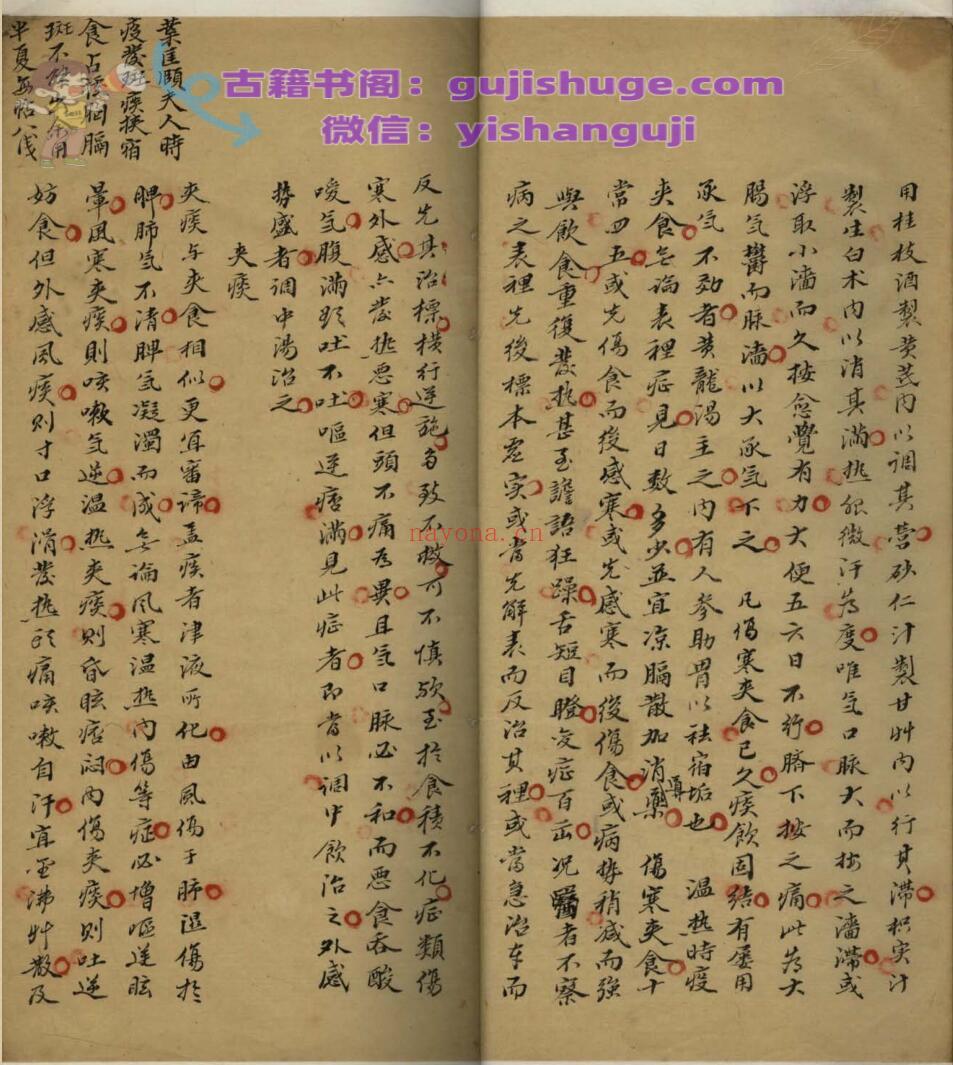 古籍书阁：gujishuge.com
微信：yishanguji
nayona.cn
用桂枝酒製黄芪内以调其营砂仁汁製甘艸内以行其滞枳实汁
製生白术内以消其满热服微汗为度唯气口脉大而按之濇滞或
浮取小濇而久按愈觉有力大便五六日不行脐下按之痛此为大
肠气欝而脉濇以大承气下之 凡伤寒夾食已久痰飲固结有屡用
承气不効者黄龍湯主之内有人参助胃以祛宿垢也 温热時疫
夾食无論表裡症見日数多少並宜凉膈散加消導藥 傷寒夾食十
常四五或先傷食而後感寒或先感寒而後傷食或病勢稍减而强
與飲食重復發热甚至譫語狂躁舌短目瞪变症百出况醫者不察
病之表裡先後標本虚实或當先解表而反治其裡或當急治本而
反先其治標横行逆施多致不救可不慎歟至於食積不化症類傷
寒外感亦發热恶寒但頭不痛为異且气口脉必不和而恶食吞酸
嗳气腹满欲吐不吐嘔逆痞满見此症者即當以调中飲治之外感
势盛者调中湯治之
夾痰
夾痰与夾食相似更宜審谛盖痰者津液所化由風傷于肺湿傷於
脾肺气不清脾气凝濁而成无論風寒温热内傷等症必增嘔逆眩
暈風寒夾痰則咳嗽气逆温热夾痰則昏眩痞闷内傷夾痰則吐逆
妨食但外感風痰則寸口浮滑發热頭痛咳嗽自汗宜金沸艸散及
葉匡頤夫人時
疫發斑痰挟宿
食占據胸膈
斑不
半夏每帖八戋